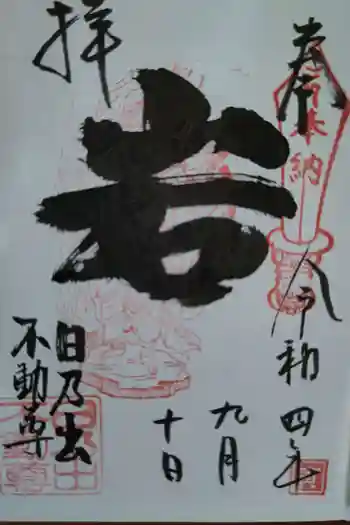 奉拝
奉納
岩
令和四年
九月
十日
日乃出
不動尊